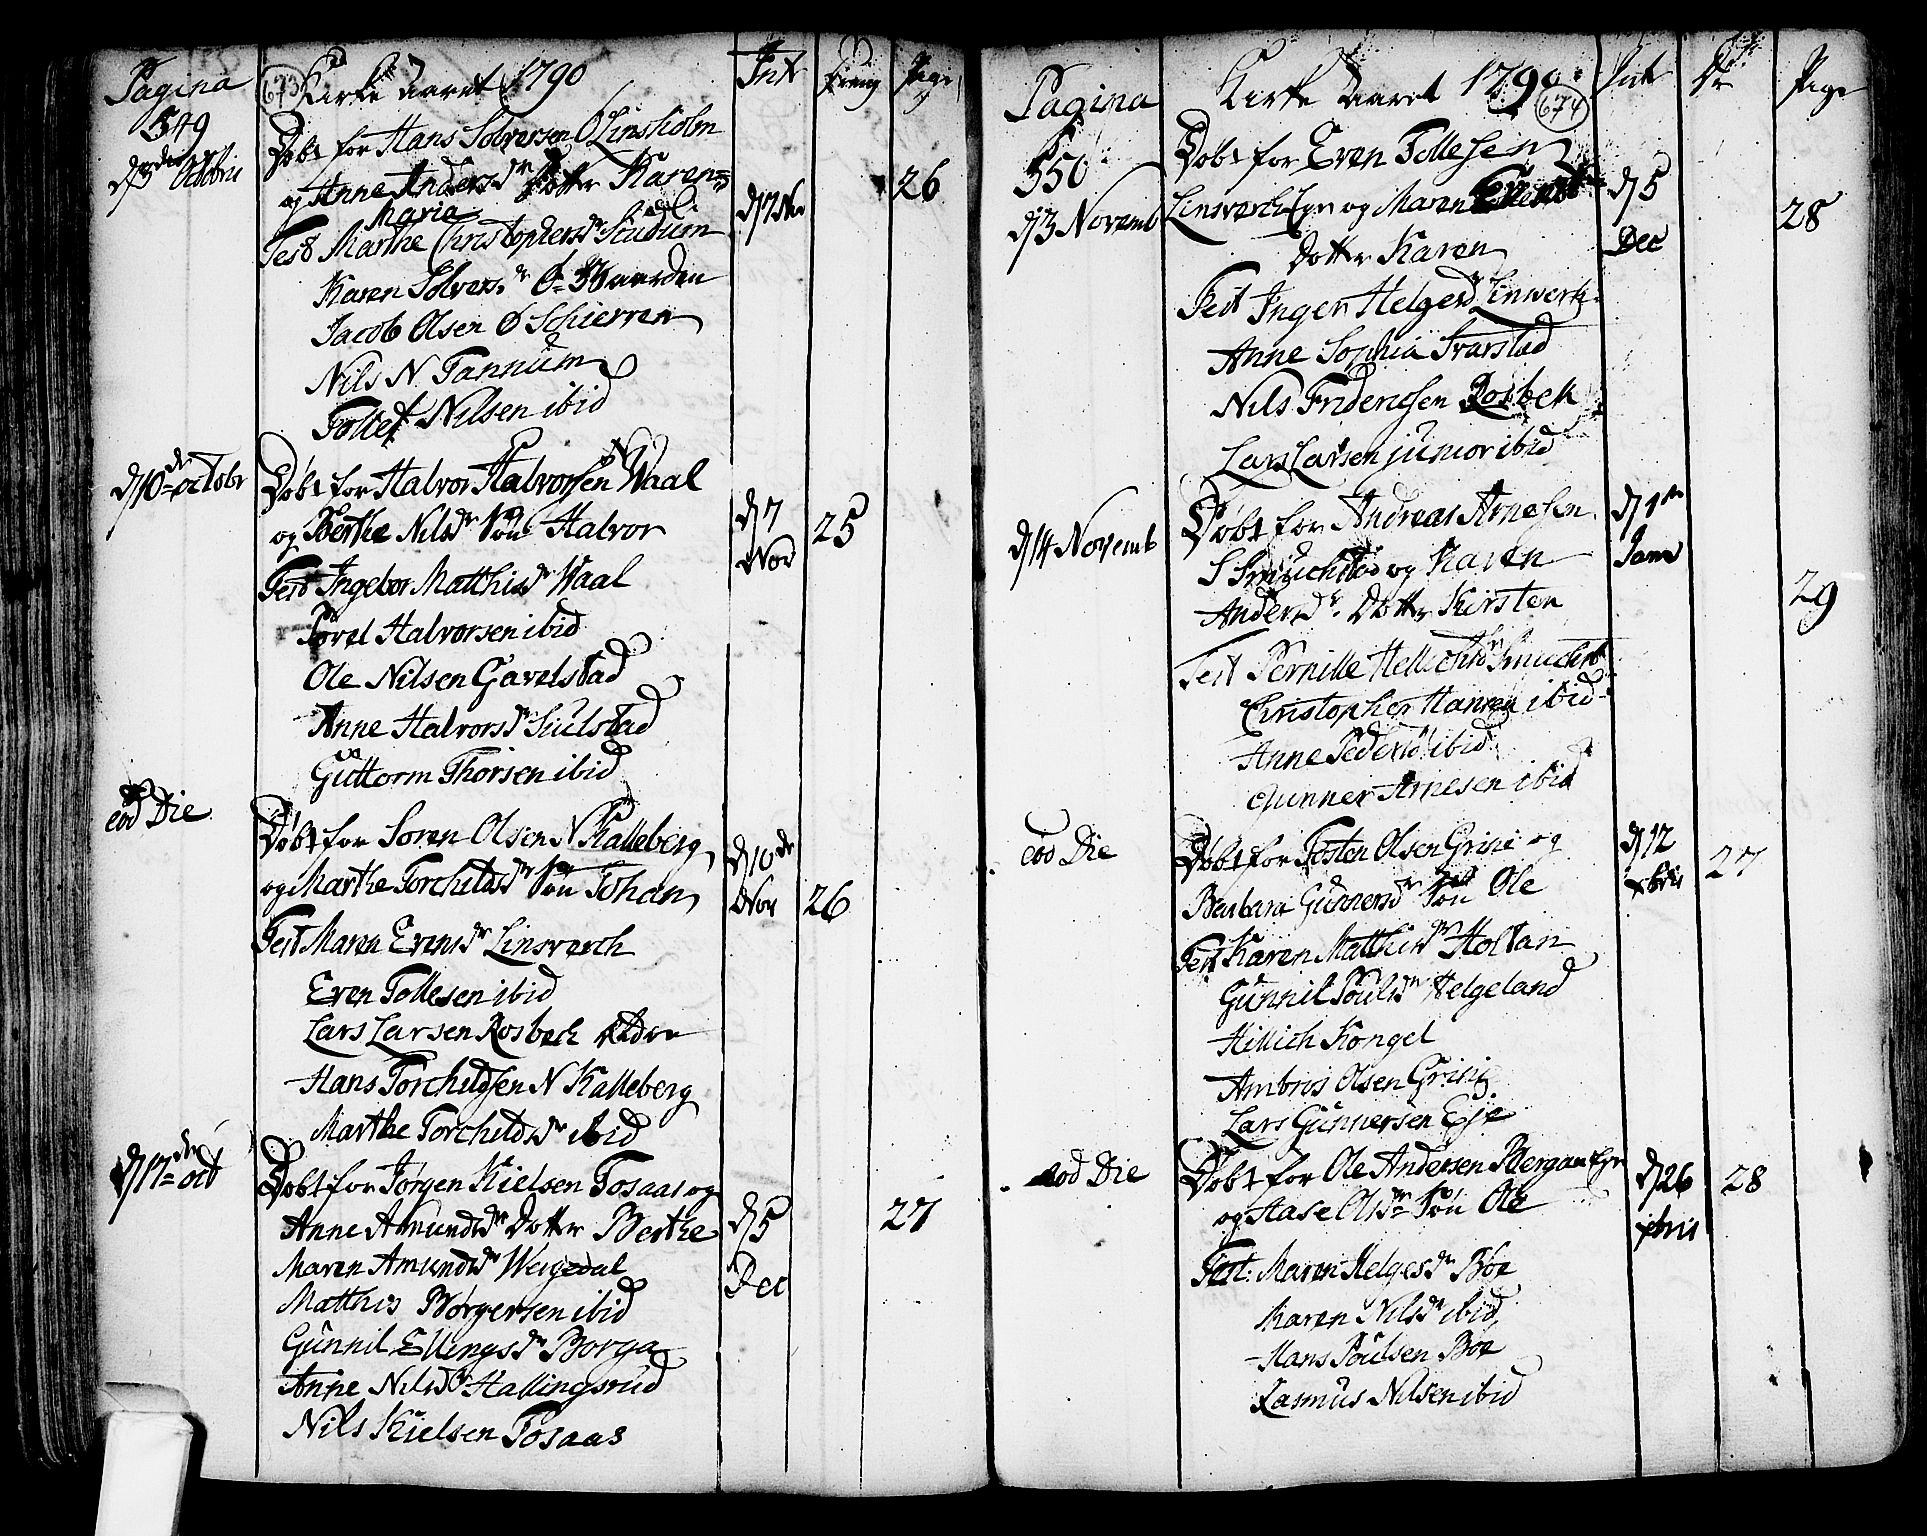 Pagina
549
673
Kirke aaret 1790
Int
Dreng
Pige
d 3de Octobris
Døbt for Hans Solversen Ø Linsholm
og Anne Andersdr Dotter Karen
Maria
Test Marthe Christophersdr Sudum
Karen Solversdr Ø
Jacob Olsen Ø Schierven
Nils N. Tannum
Tollef Nilsen ibid
d 7 Nov
26
d 10de octobr
Døbt for Halvor Halvorsen Waal
og Berthe Nilsdr Søn Halvor
Test Ingebor Matthisdr Waal
Povel Halvorsen ibid
Ole Nilsen Gavelstad
Anne Halvorsdr Sulstad
Guttorm Thorsen ibid
d 7
Nov
25
eod Die
Døbt for Soren Olsen N Kalleberg
og Marthe Torchildsdr Søn Johan
Test Maren Evensdr Linsverch
Even Tollesen ibid
Lars Larsen Rosbech eldre
Hans Torchildsen N Kalleberg
Marthe Torchildsdr ibid
d 10de
Nov
26
d 17de oct
Døbt for Jørgen Kielsen Fosaas og
Anne Amundsdr Dotter Berthe
Maren Amundsdr Weigedal
Matthis Børgersen ibid
Gunnil Ellingsdr Borga
Anne Nilsdr Hallingsrud
Nils Kielsen Fosaas
d 5
Dec
27
Pagina
550
Kirke Aaret 1790
674
Int
Dr
Pige
d 3 Novemb
Døbt for Even Tollesen
Linsverch Eyr og Maren
Dotter Karen
Test Inger Helgesd Linverk
Anne Sophia Svarstad
Nils Fridericsen Rosbek
Lars Larsen junior ibid
d 5
Dec
28
d 14 Novemb
Døbt for Andreas Arnesen
S Smuchestad og Karen
Andersdr. Dotter Kirsten
Test Pernille Hellichsdr Smuchest
Christopher Hansen ibid
Anne Pedersd ibid
Gunner Arnesen ibid
d 1te
Janv
29
eod Die
Døbt for Tosten Olsen Grini og
Barbara Gunnersdr Søn Ole
Test Karen Matthisdr Holtan
Gunnil Poulsdr Helgeland
Hellich Kongel
Ambros Olsen Grini
Lars Gunnersen Eye
d 12
xbris
27
eod Die
Døbt for Ole Andersen Bergan Eyr
og Aase Olsdr Søn Ole
Test: Maren Helgesdr Boe
Maren Nilsdr ibid
Hans Poulsen Boe
Rasmus Nilsen ibid
d 26
xbris
28